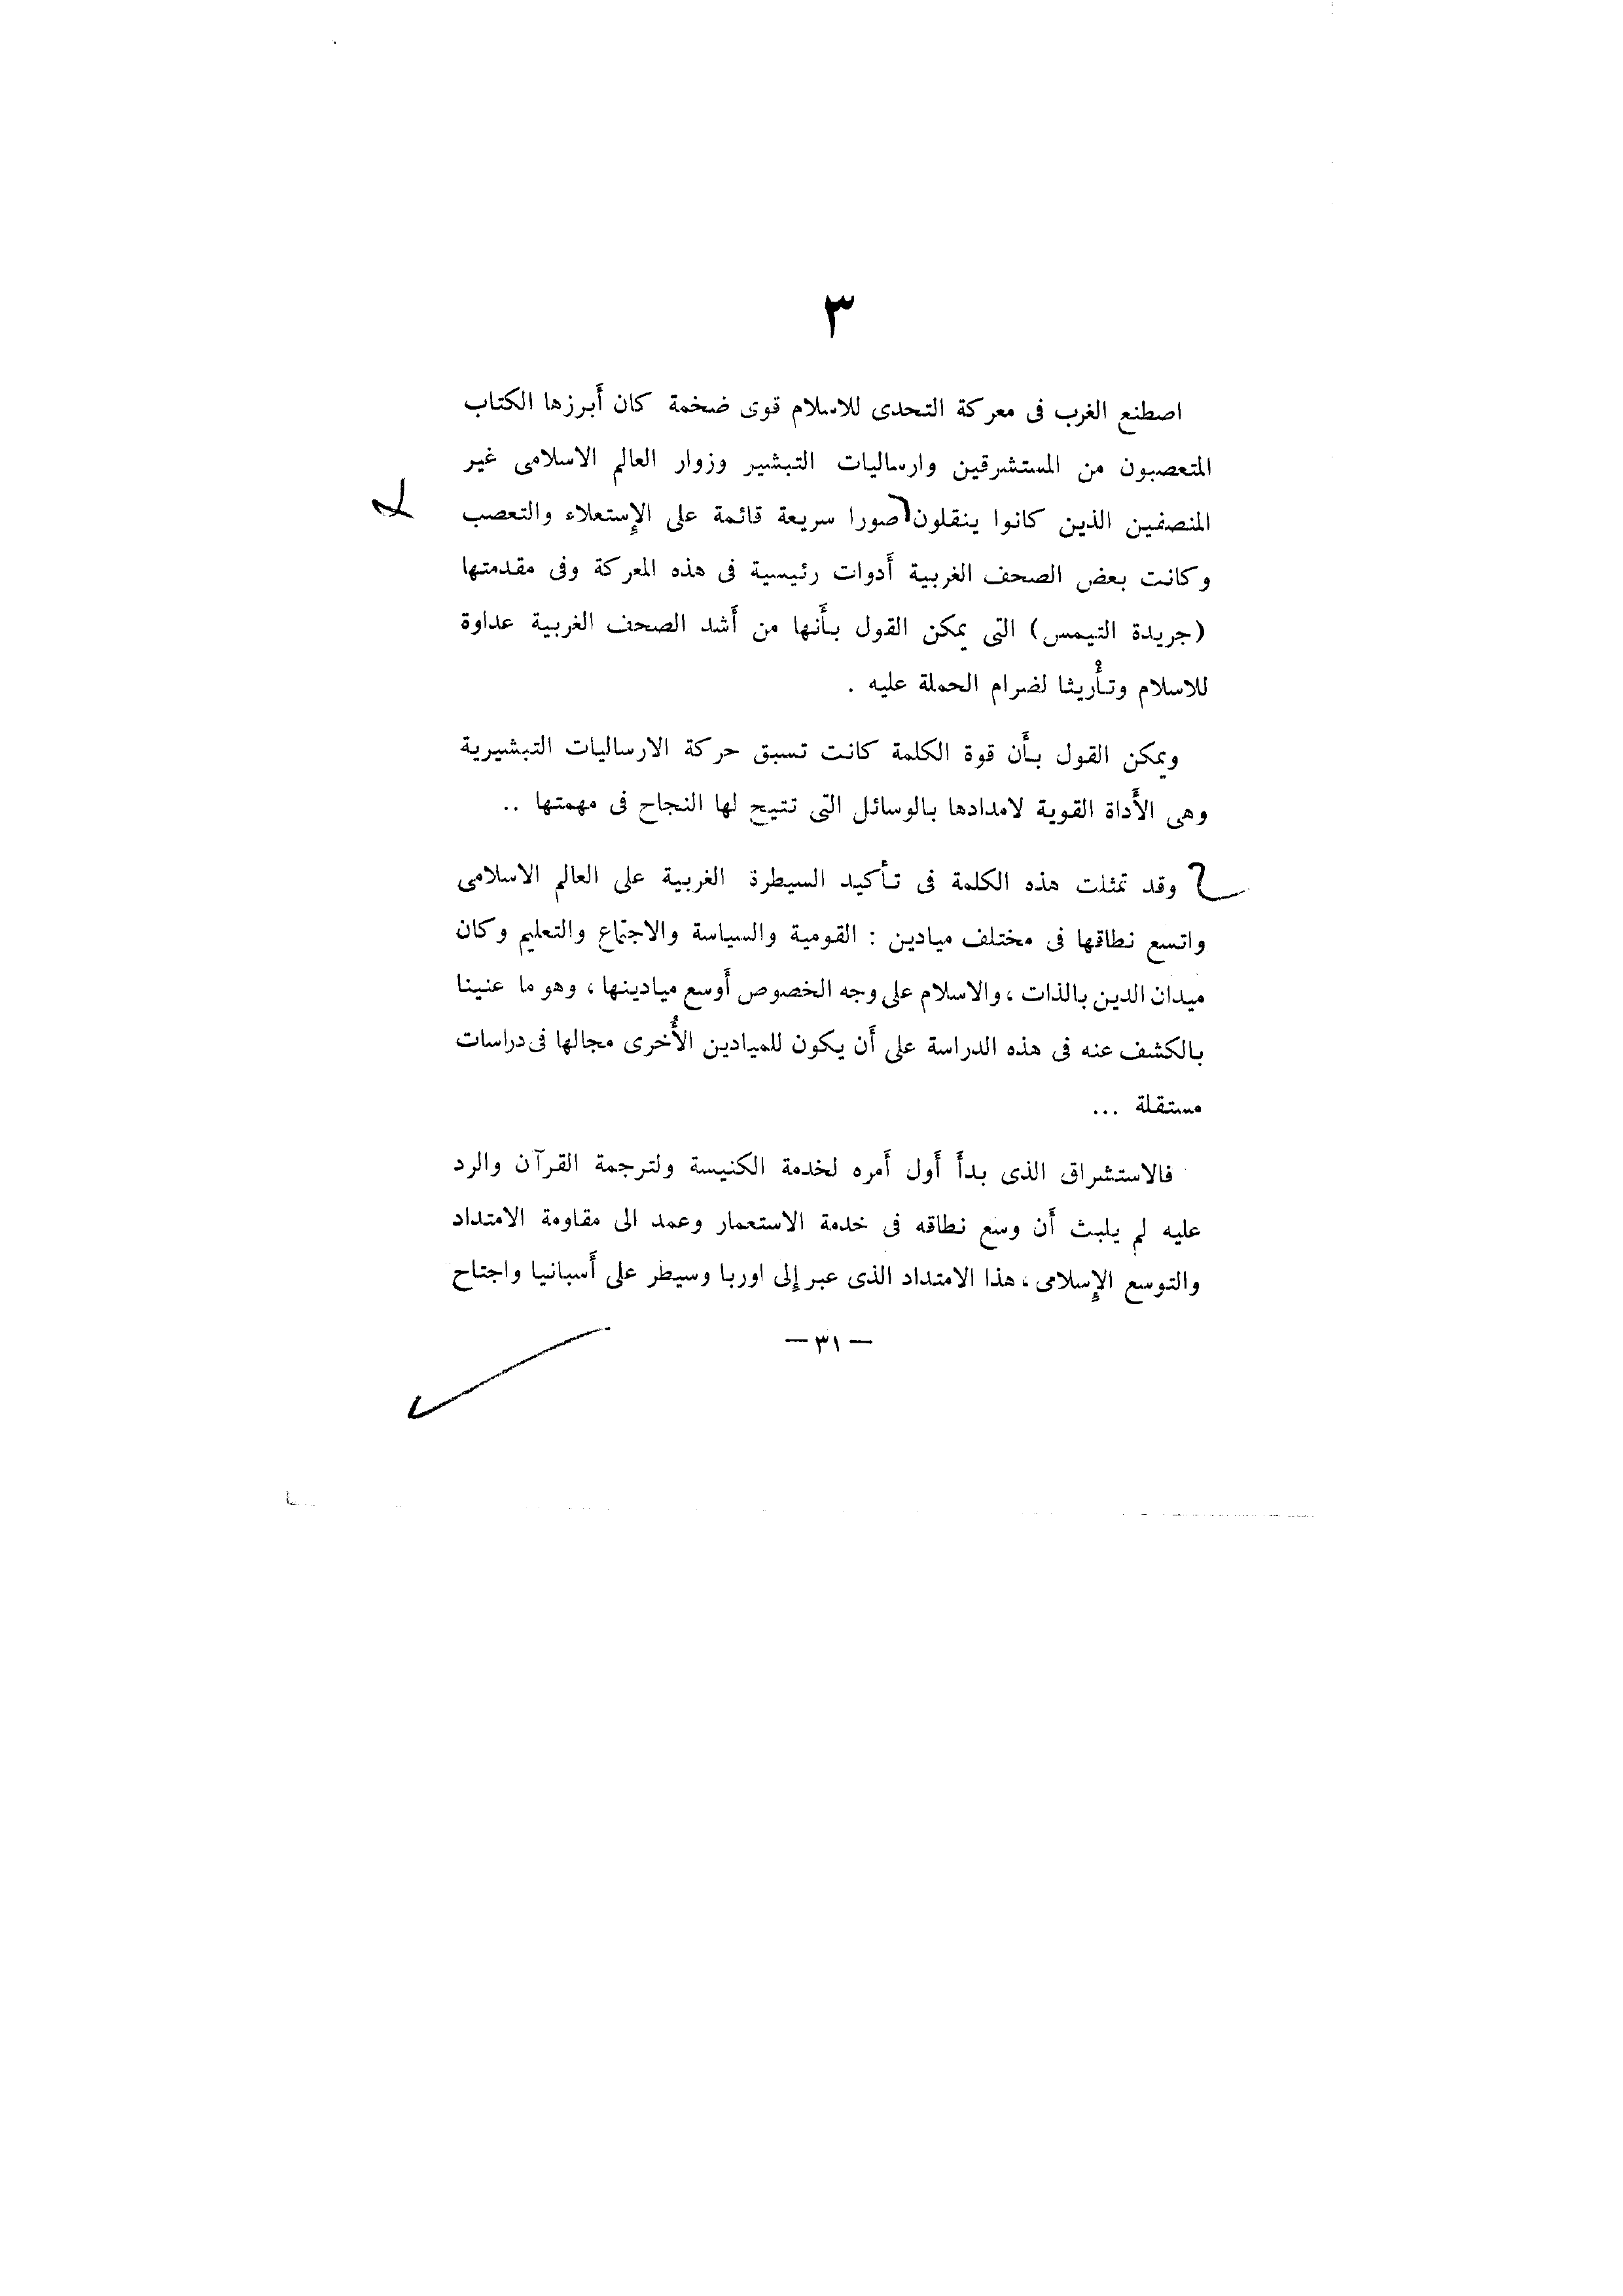 ٣
اصطنع الغرب فى معركة التحدى للاسلام قوى ضخمة كان أَبرزها الكتاب
المتعصبون من المستشرقين وارساليات التبشير وزوار العالم الاسلامى غير
المنصفين الذين كانوا ينقلون صورا سريعة قائمة على الإِستعلاء والتعصب
وكانت بعض الصحف الغربية أَدوات رئيسية فى هذه المعركة وفى مقدمتها
(جريدة التيمس) التى يمكن القول بأَنها من أَشد الصحف الغربية عداوة
للاسلام وتأْريثا لضرام الحملة عليه .
ويمكن القول بأَن قوة الكلمة كانت تسبق حركة الارساليات التبشيرية
وهى الأَداة القوية لامدادها بالوسائل التى تتيح لها النجاح فى مهمتها ..
وقد تمثلت هذه الكلمة فى تأكيد السيطرة الغربية على العالم الاسلامى
واتسع نطاقها فى مختلف ميادين : القومية والسياسة والاجتماع والتعليم وكان
ميدان الدين بالذات ، والاسلام على وجه الخصوص أَوسع ميادينها ، وهو ما عنينا
بالكشف عنه فى هذه الدراسة على أَن يكون للميادين الأُخرى مجالها فى دراسات
مستقلة ...
فالاستشراق الذى بدأَ أَول أَمره لخدمة الكنيسة ولترجمة القرآن والرد
عليه لم يلبث أَن وسع نطاقه فى خدمة الاستعمار وعمد الى مقاومة الامتداد
والتوسع الإِسلامى ، هذا الامتداد الذى عبر إِلى اوربا وسيطر على أَسبانيا واجتاح
— ٣١ —